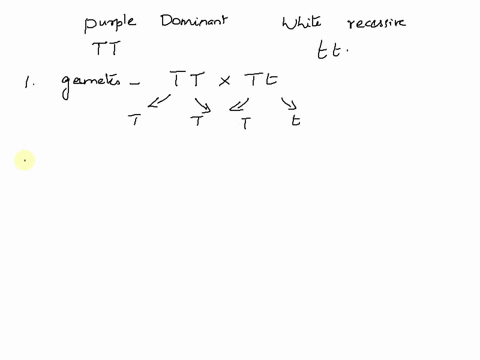 purple Dominant White recessive
TT tt.
1. gametes - TT x Tt
T T T t